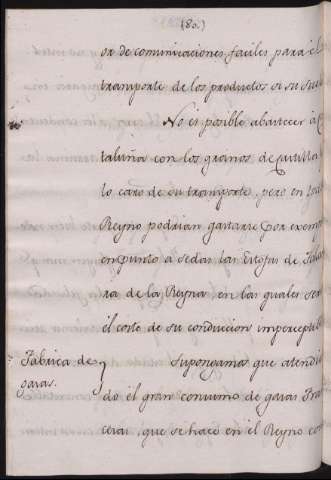 (80.)
or de comunicaciones faciles para el
transporte de los productos si su
No es posible abastecer à
taluña con los granos de Castilla
lo caro de su transporte, pero en
Reyno podrian gastarse por exemp
en punto a sedas las Estofas de Tala
ra de la Reyna en las quales ser
el coste de su conduccion imperceptib
Fabrica de
gasas.
Supongamos que atendi
do el gran consumo de gasas Fran
cesas, que se hace en el Reyno con